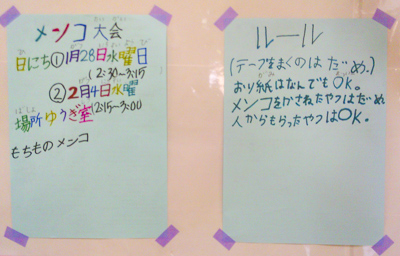 メンコ大会
日にち①1月28日水曜日
(2:30〜3:15
②2月4日水曜
場所ゆうぎ室(2:15〜3:00)
もちものメンコ
ルール
(テープをまくのはだめ。)
おり紙はなんでもOK。
メンコをかさねたやつはだめ
人からもらったやつはOK。